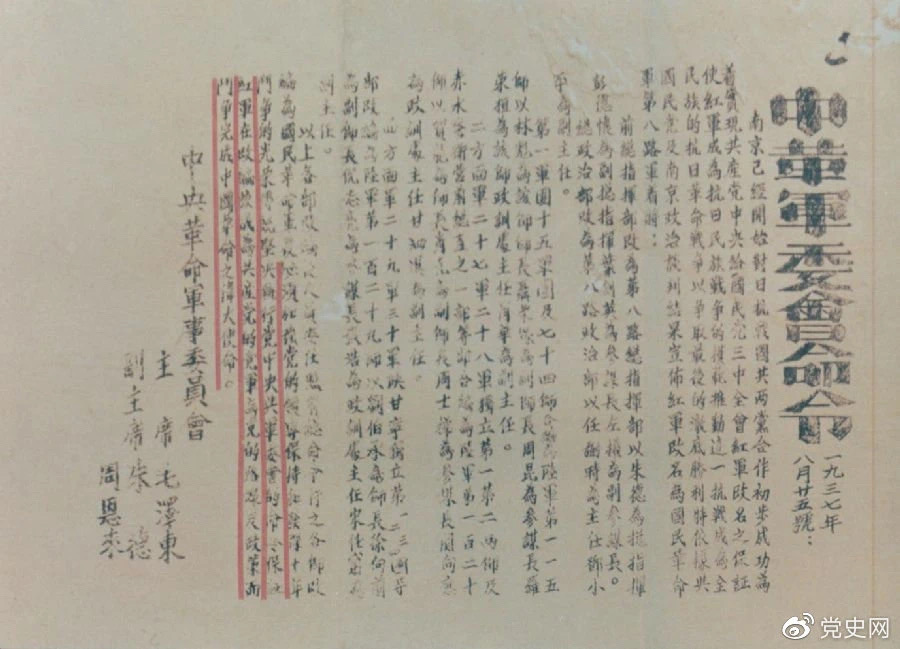 中華軍委會命令
一九三七年
八月廿五號：
南京已經開始對日抗戰國共兩黨合作初步成功為
着實現共產党中央給國民党三中全會紅軍改名之保証
使紅軍成為抗日民族戰争的模範推動這一抗戰成為全
民族的抗日革命戰争以争取最後的澈底勝利特依據共
國民党及南京政治談判結果宣佈紅軍改名為國民革命
軍第八路軍着明：
前總指揮部改為第八路總指揮部以朱德為總指揮
彭德懷為副總指揮葉劍英為參謀長左權為副參謀長。
總政治部改為第八路政治部以任弼時為主任鄧小
平為副主任。
第一軍團十五軍團及七十四師合編為陸軍第一一五
師以林彪為該師師長聶榮臻為副師長周昆為參謀長羅
榮桓為該師政訓處主任蕭華為副主任。
二方面軍二十七軍二十八軍獨立第一第二兩師及
赤水警衛營前總直之一部等部合編為陸軍第一百二十
師以賀龍為師長蕭克為副師長周士為參謀長關向應
為政訓處主任甘泗淇為副主任。
四方面軍二十九軍三十軍陝甘寧獨立第一二三四團等
部改編為陸軍第一百二十九師以劉伯承為師長徐向前
為副師長倪志亮為參謀長張浩為政訓處主任宋任窮為
副主任。
以上各部改編後人員委任照前總命令行之各部改
編為國民革命軍後必須加強党的領導保持和發揮十年
鬥争的光榮傳統堅決執行党中央與軍委會的命令保証
紅軍在改編後成為共產党的党軍為党的路線及政策而
鬥争完成中國革命之偉大使命。
中央革命軍事委員會
主席毛澤東
副主席朱德
周恩來
党史网